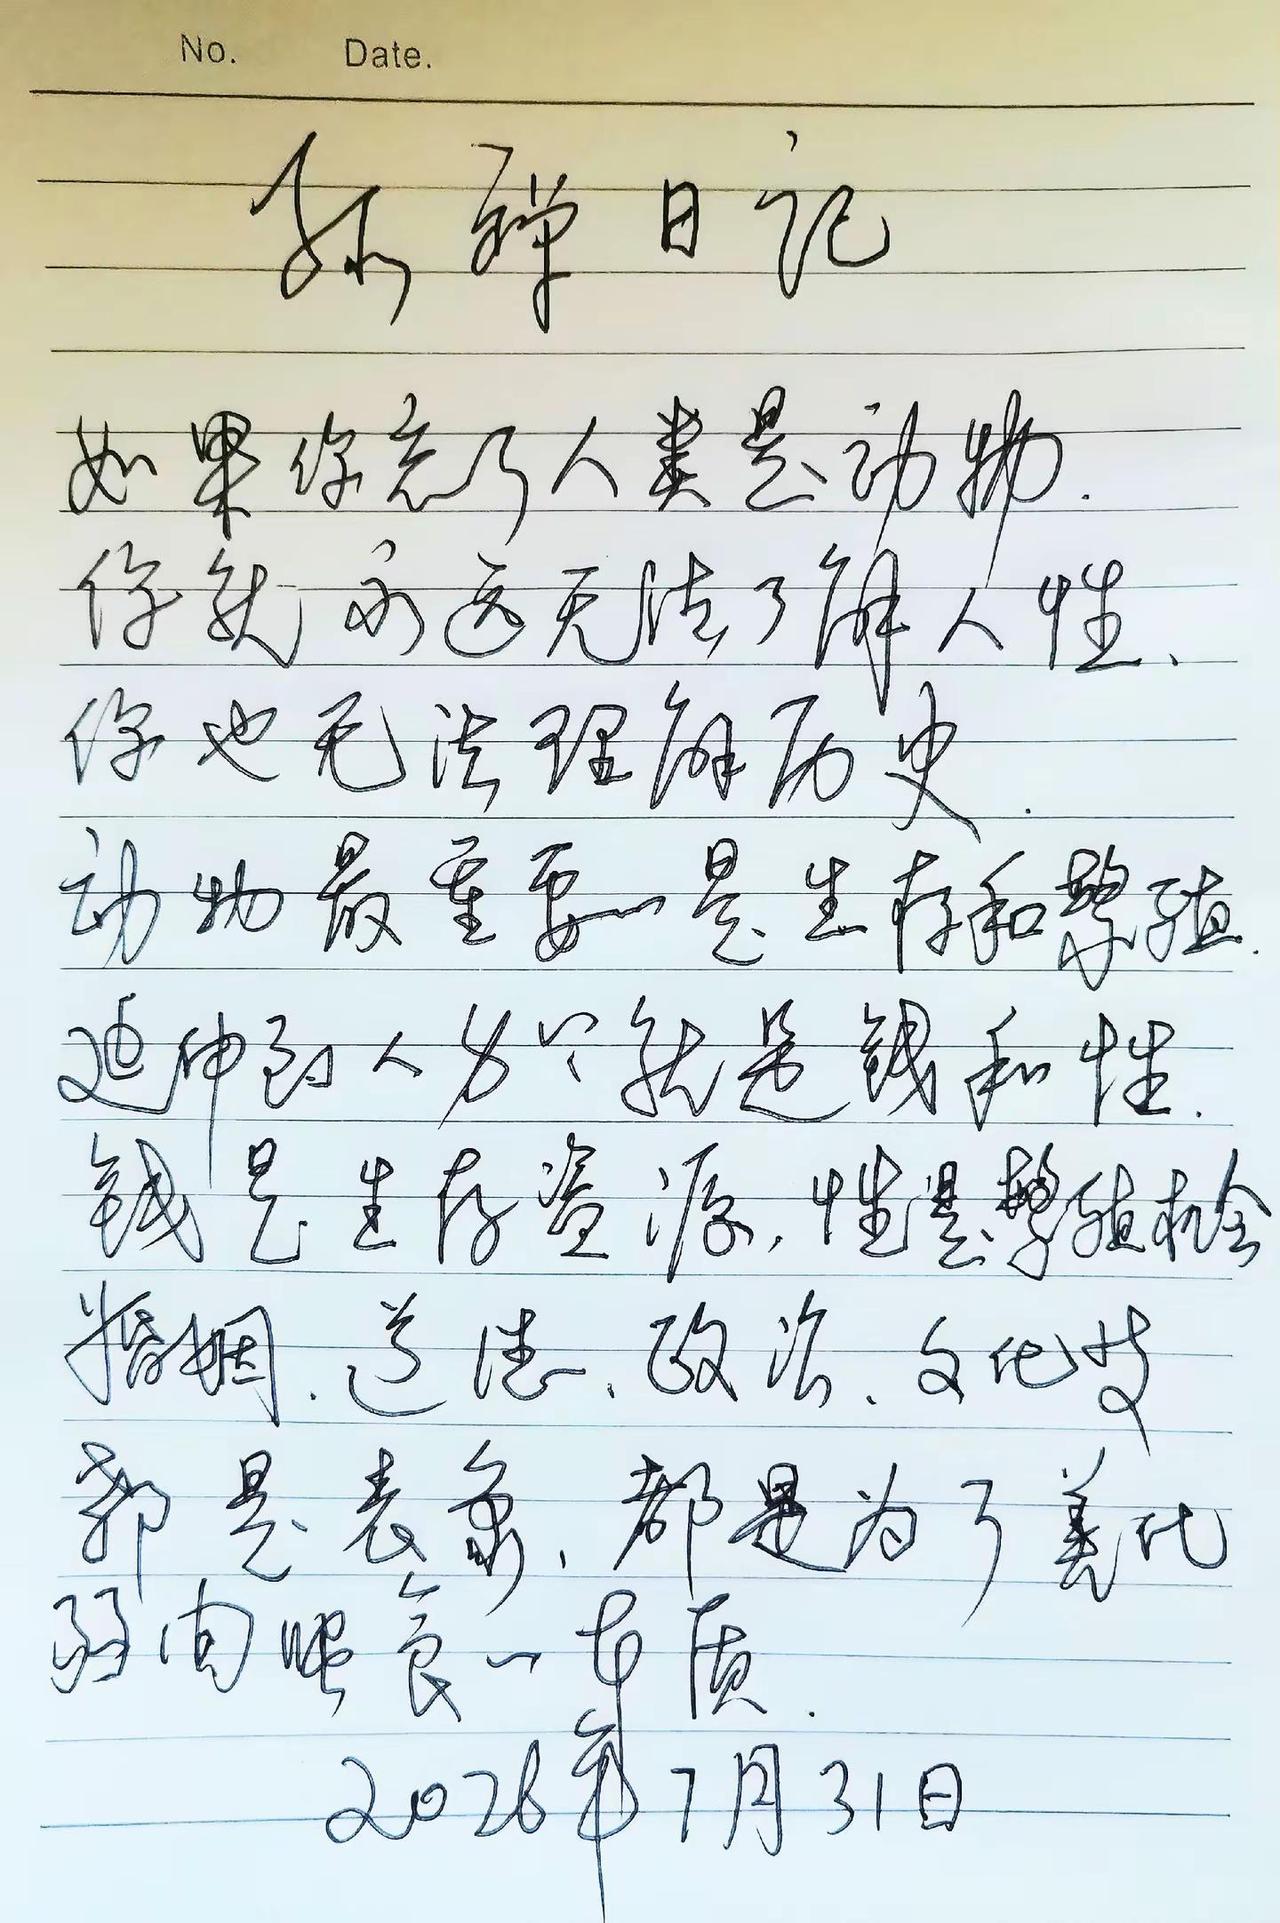 No. Date.
禅日记
如果你忘了人类是动物.
你就永远无法了解人性、
你也无法理解历史.
动物最重要的是生存和繁殖.
延伸到人身上就是钱和性.
钱是生存资源,性是繁殖机会
婚姻、道德、政治、文化艺
都是表象,都是为了美化
弱肉强食的本质.
2026年7月31日